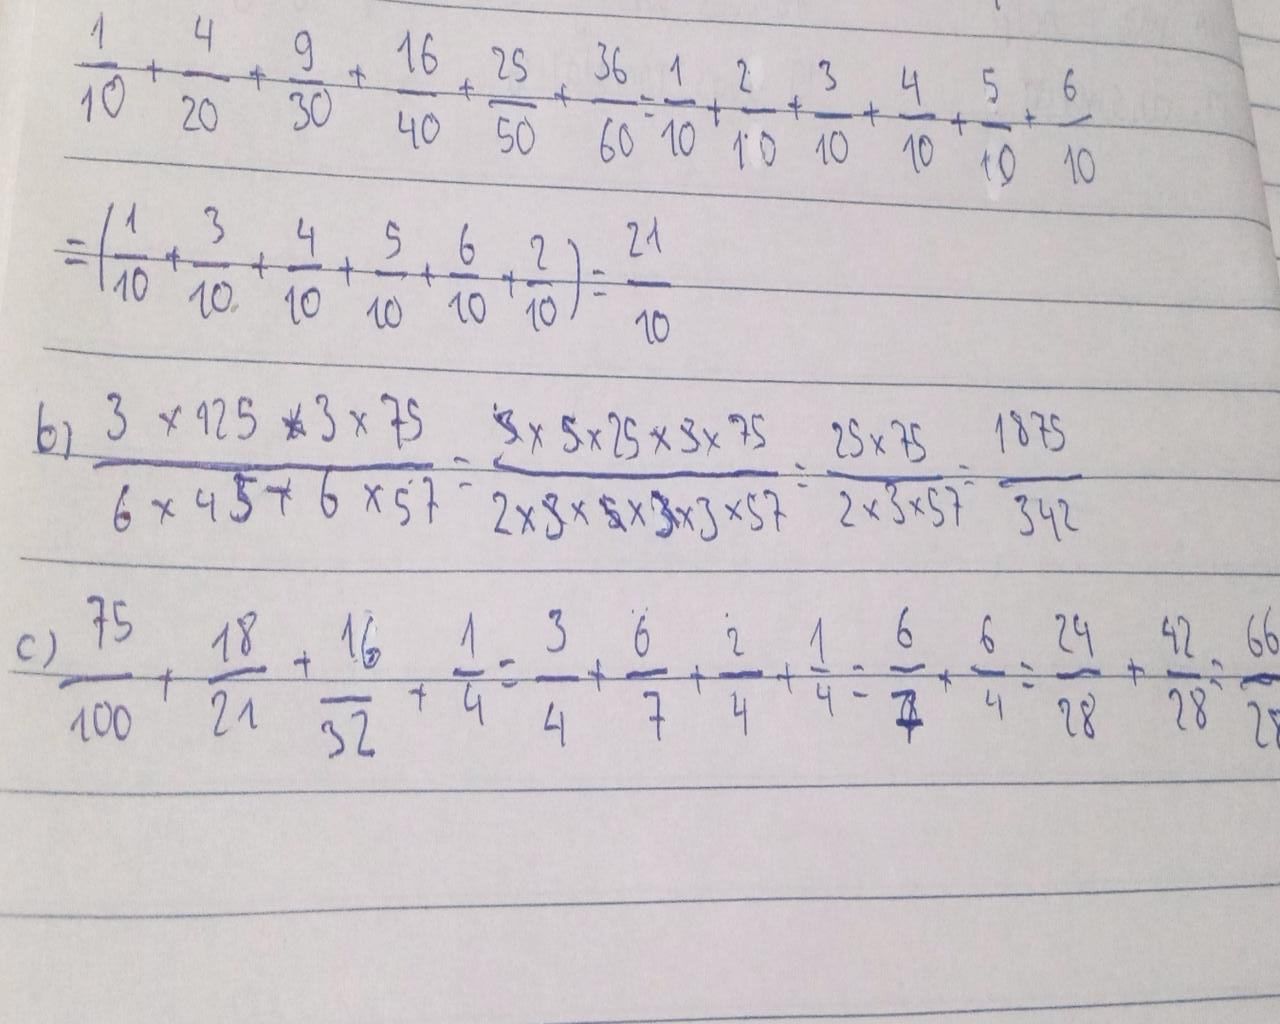 1/10 + 4/20 + 9/30 + 16/40 + 25/50 + 36/60 = 1/10 + 2/10 + 3/10 + 4/10 + 5/10 + 6/10
= (1/10 + 3/10 + 4/10 + 5/10 + 6/10 + 2/10) = 21/10
b) 3 × 125 × 3 × 75 / 6 × 45 + 6 × 57 = 3 × 5 × 25 × 3 × 75 / 2 × 3 × 5 × 3 × 3 × 57 = 25 × 75 / 2 × 3 × 57 = 1875/342
c) 75/100 + 18/21 + 16/32 + 1/4 = 3/4 + 6/7 + 2/4 + 1/4 = 6/7 + 6/4 = 24/28 + 42/28 = 66/28